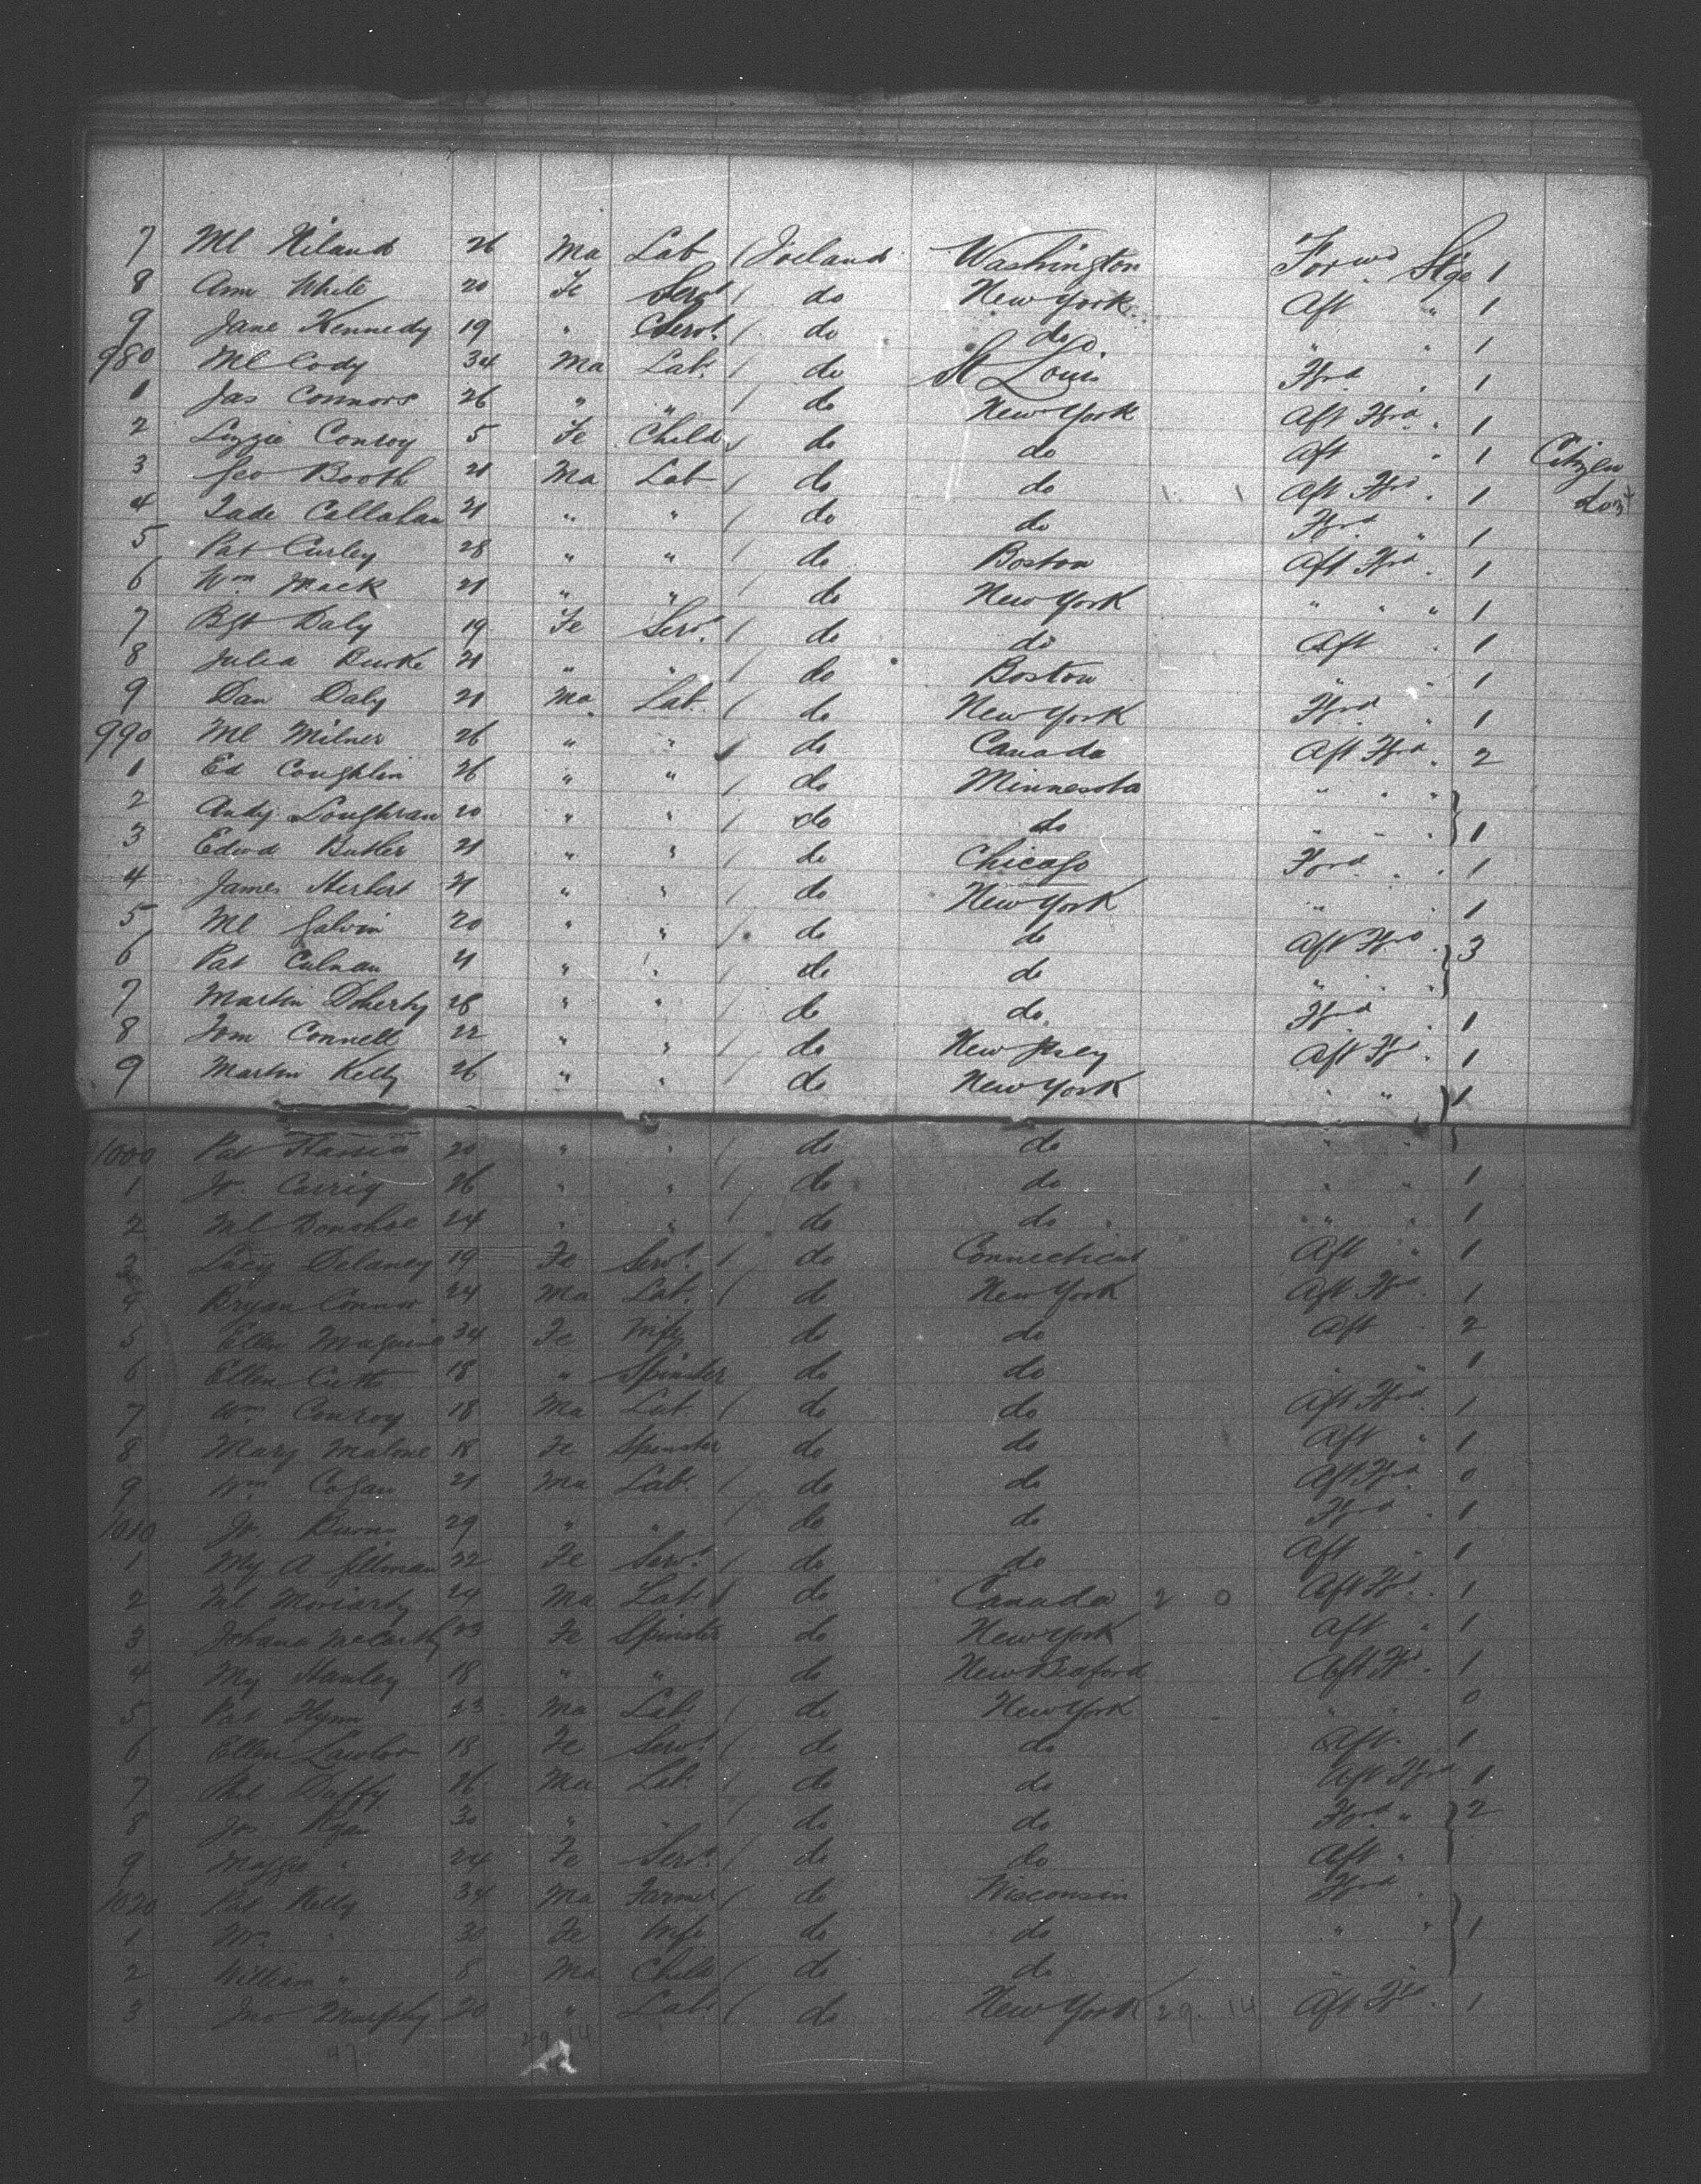 7 Ml Hiland 26 Ma Lab Ireland Washington Forwd Stge 1
8 Ann White 20 Fe Servt do New York Aft " 1
9 Jane Kennedy 19 " Servt do do " " 1
980 Ml Cody 34 Ma Labr do St Louis Ford " 1
1 Jas Connors 26 " " do New York Aft Ford " 1
2 Lizzie Conroy 5 Fe Child do do Aft " 1 Citizen
3 Geo Booth 21 Ma Lab do do 1 1 Aft Ford " 1
4 Tade Callahan 21 " " do do Ford " 1
5 Pat Curley 28 " " do Boston Aft Ford " 1
6 Wm Mack 21 " " do New York " " " 1
7 Bgt Daly 19 Fe Servt do do Aft " 1
8 Julia Burke 21 " " do Boston " " 1
9 Dan Daly 21 Ma Lab do New York Ford " 1
990 Ml Milner 26 " " do Canada Aft Ford " 2
1 Ed Coughlin 26 " " do Minnesota " " "
2 Andy Loughran 20 " " do do " " " 1
3 Edwd Butler 21 " " do Chicago Ford " " 1
4 James Herbert 21 " " do New York " " 1
5 Ml Galvin 20 " " do do Aft Ford " 3
6 Pat Culnan 21 " " do do " " "
7 Martin Doherty 28 " " do do Ford " 1
8 Tom Connell 22 " " do New Jrsey Aft Ford " 1
9 Martin Kelly 26 " " do New York " " 1
1000 Pat 20 " " do do " "
1 Jr. Carrig 26 " " do do " " 1
2 Ml Donohoe 24 " " do do " " 1
3 Lucy Delaney 19 Fe Servt do Connecticut Aft " 1
4 Bryan Connor 24 Ma Lab. do New York Aft Ford " 1
5 Ellen Maguire 34 Fe Wife do do Aft " 2
6 Ellen 18 " Spinster do do " " 1
7 Wm Conroy 18 Ma Lab. do do Aft Ford " 1
8 Mary Malone 18 Fe Spinster do do Aft " 1
9 Wm Cogan 21 Ma Labr do do Aft Ford 0
1010 Jr. Burns 29 " " do do Ford " 1
1 My A Gillman 22 Fe Servt do do Aft " 1
2 Ml Moriarty 24 Ma Labr do Canada 2 0 Aft Ford " 1
3 Johana McCarthy 23 Fe Spinster do New York Aft " 1
4 My Hanley 18 " " do New Beaford Aft Ford " 1
5 Pat Flynn 23 Ma Labr do New York " " 0
6 Ellen Lawlor 18 Fe Servt do do Aft " 1
7 Phil Duffy 26 Ma Lab. do do Aft Ford 1
8 Jas Ryan 30 " " do do Ford " 2
9 Maggie " 24 Fe Servt do do Aft "
1020 Pat Kelly 34 Ma Farmer do Wisconsin Ford "
1 " 30 Fe Wife do do " " 1
2 William " 8 Ma Child do do
3 Jno Murphy 20 " Labr do New York 29. 14 Aft Ford " 1
47 29 14